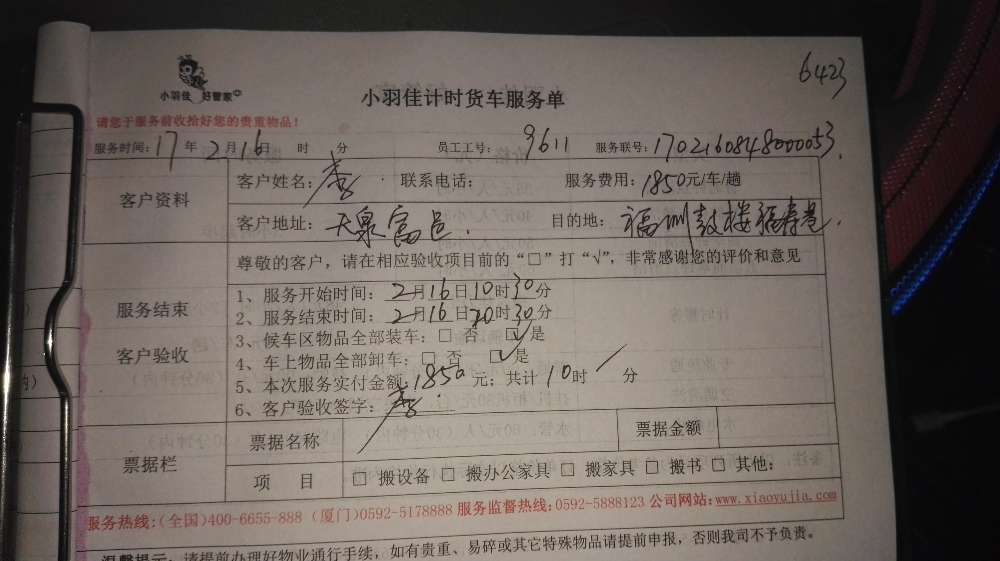 6423
小羽佳 好管家
小羽佳计时货车服务单
请您于服务前收拾好您的贵重物品!
服务时间: 17 年 2 月 16 日 时 分 员工工号: 9611 服务联号: 1702160848000053
客户资料
客户姓名: 李 联系电话: 服务费用: 1850元/车/趟
客户地址: 天泉富邑 目的地: 福州鼓楼福寿巷
尊敬的客户，请在相应验收项目前的“□”打“√”，非常感谢您的评价和意见
服务结束
客户验收
1、服务开始时间: 2月16日10时30分
2、服务结束时间: 2月16日20时30分
3、候车区物品全部装车: □ 否 ☑是
4、车上物品全部卸车: □ 否 ☑是
5、本次服务实付金额 1850 元; 共计 10时 / 分
6、客户验收签字: 李
票据栏
票据名称 票据金额
项 目 □ 搬设备 □ 搬办公家具 □ 搬家具 □ 搬书 □ 其他:
服务热线:(全国)400-6655-888 (厦门)0592-5178888 服务监督热线: 0592-5888123 公司网站: www.xiaoyujia.com
温馨提示: 请提前办理好物业通行手续, 如有贵重、易碎或其它特殊物品请提前申报, 否则我司不予负责。